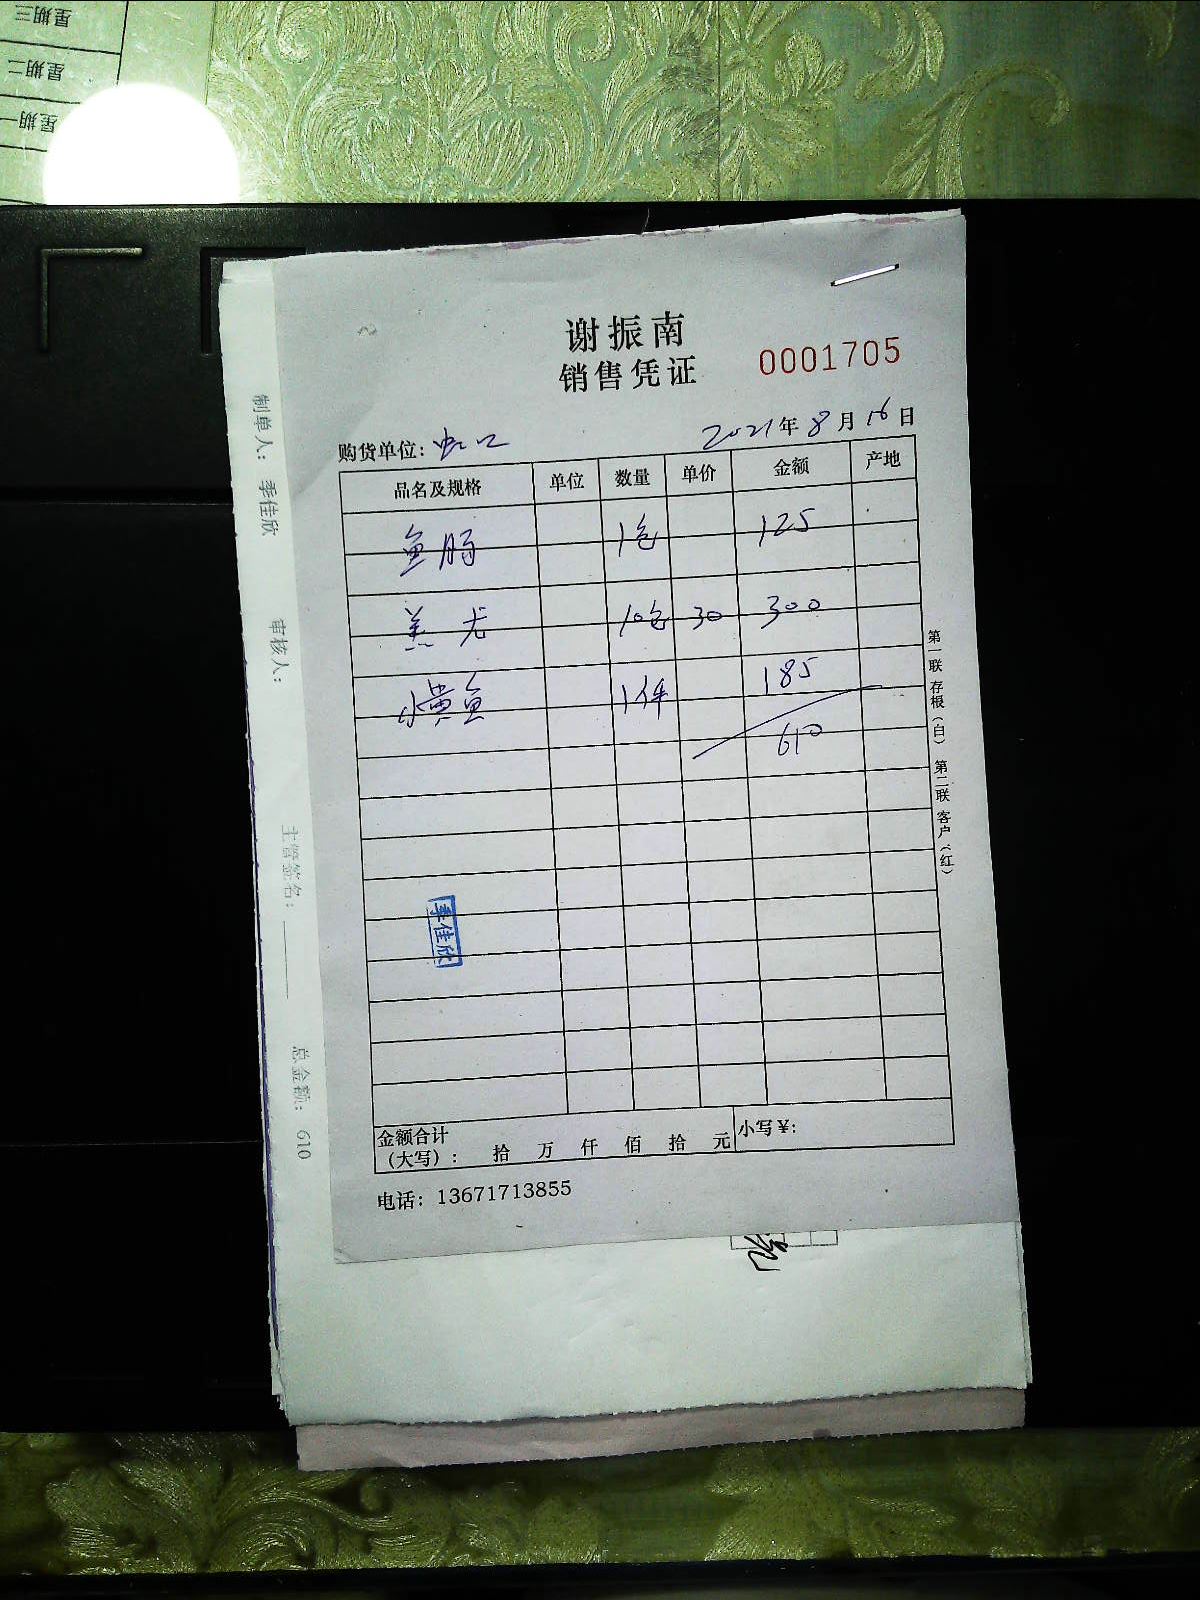 星期三
星期二
星期一
谢振南
销售凭证
0001705
购货单位: 虹口
2021年8月16日
品名及规格 单位 数量 单价 金额 产地
鱼肠 1包 125
羔尤 10包 30 300
小黄鱼 1件 185
610
季佳欣
金额合计
(大写): 拾 万 仟 佰 拾 元 小写¥:
电话: 13671713855
第一联 存根(白) 第二联 客户(红)
制单人: 季佳欣 审核人: 主管签名: 总金额: 610